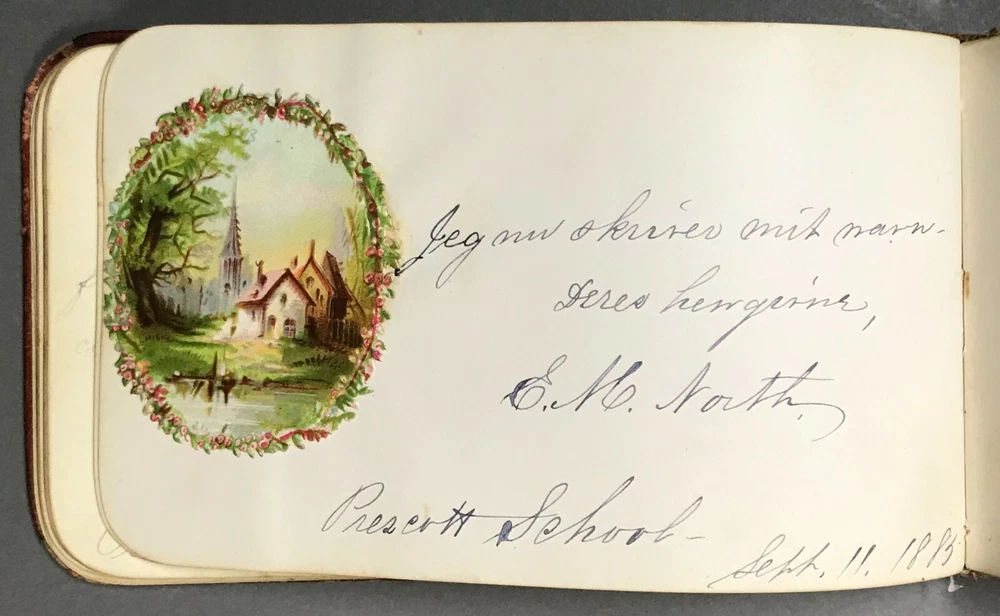 Jeg nu skriver mit navn-
Deres hengivne,
E. M. North.
Prescott School-
Sept. 11. 1885